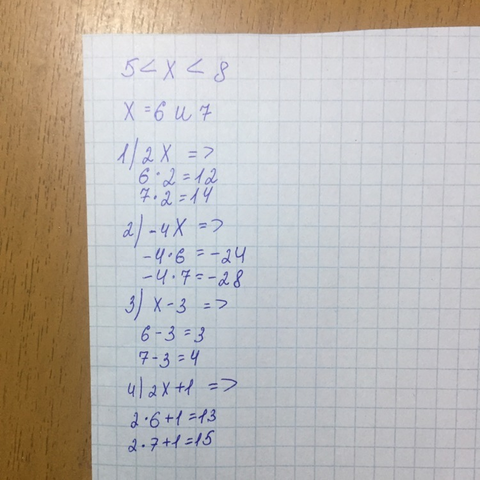 5 < x < 8
x = 6 и 7
1) 2x =>
6 · 2 = 12
7 · 2 = 14
2) -4x =>
-4 · 6 = -24
-4 · 7 = -28
3) x - 3 =>
6 - 3 = 3
7 - 3 = 4
4) 2x + 1 =>
2 · 6 + 1 = 13
2 · 7 + 1 = 15